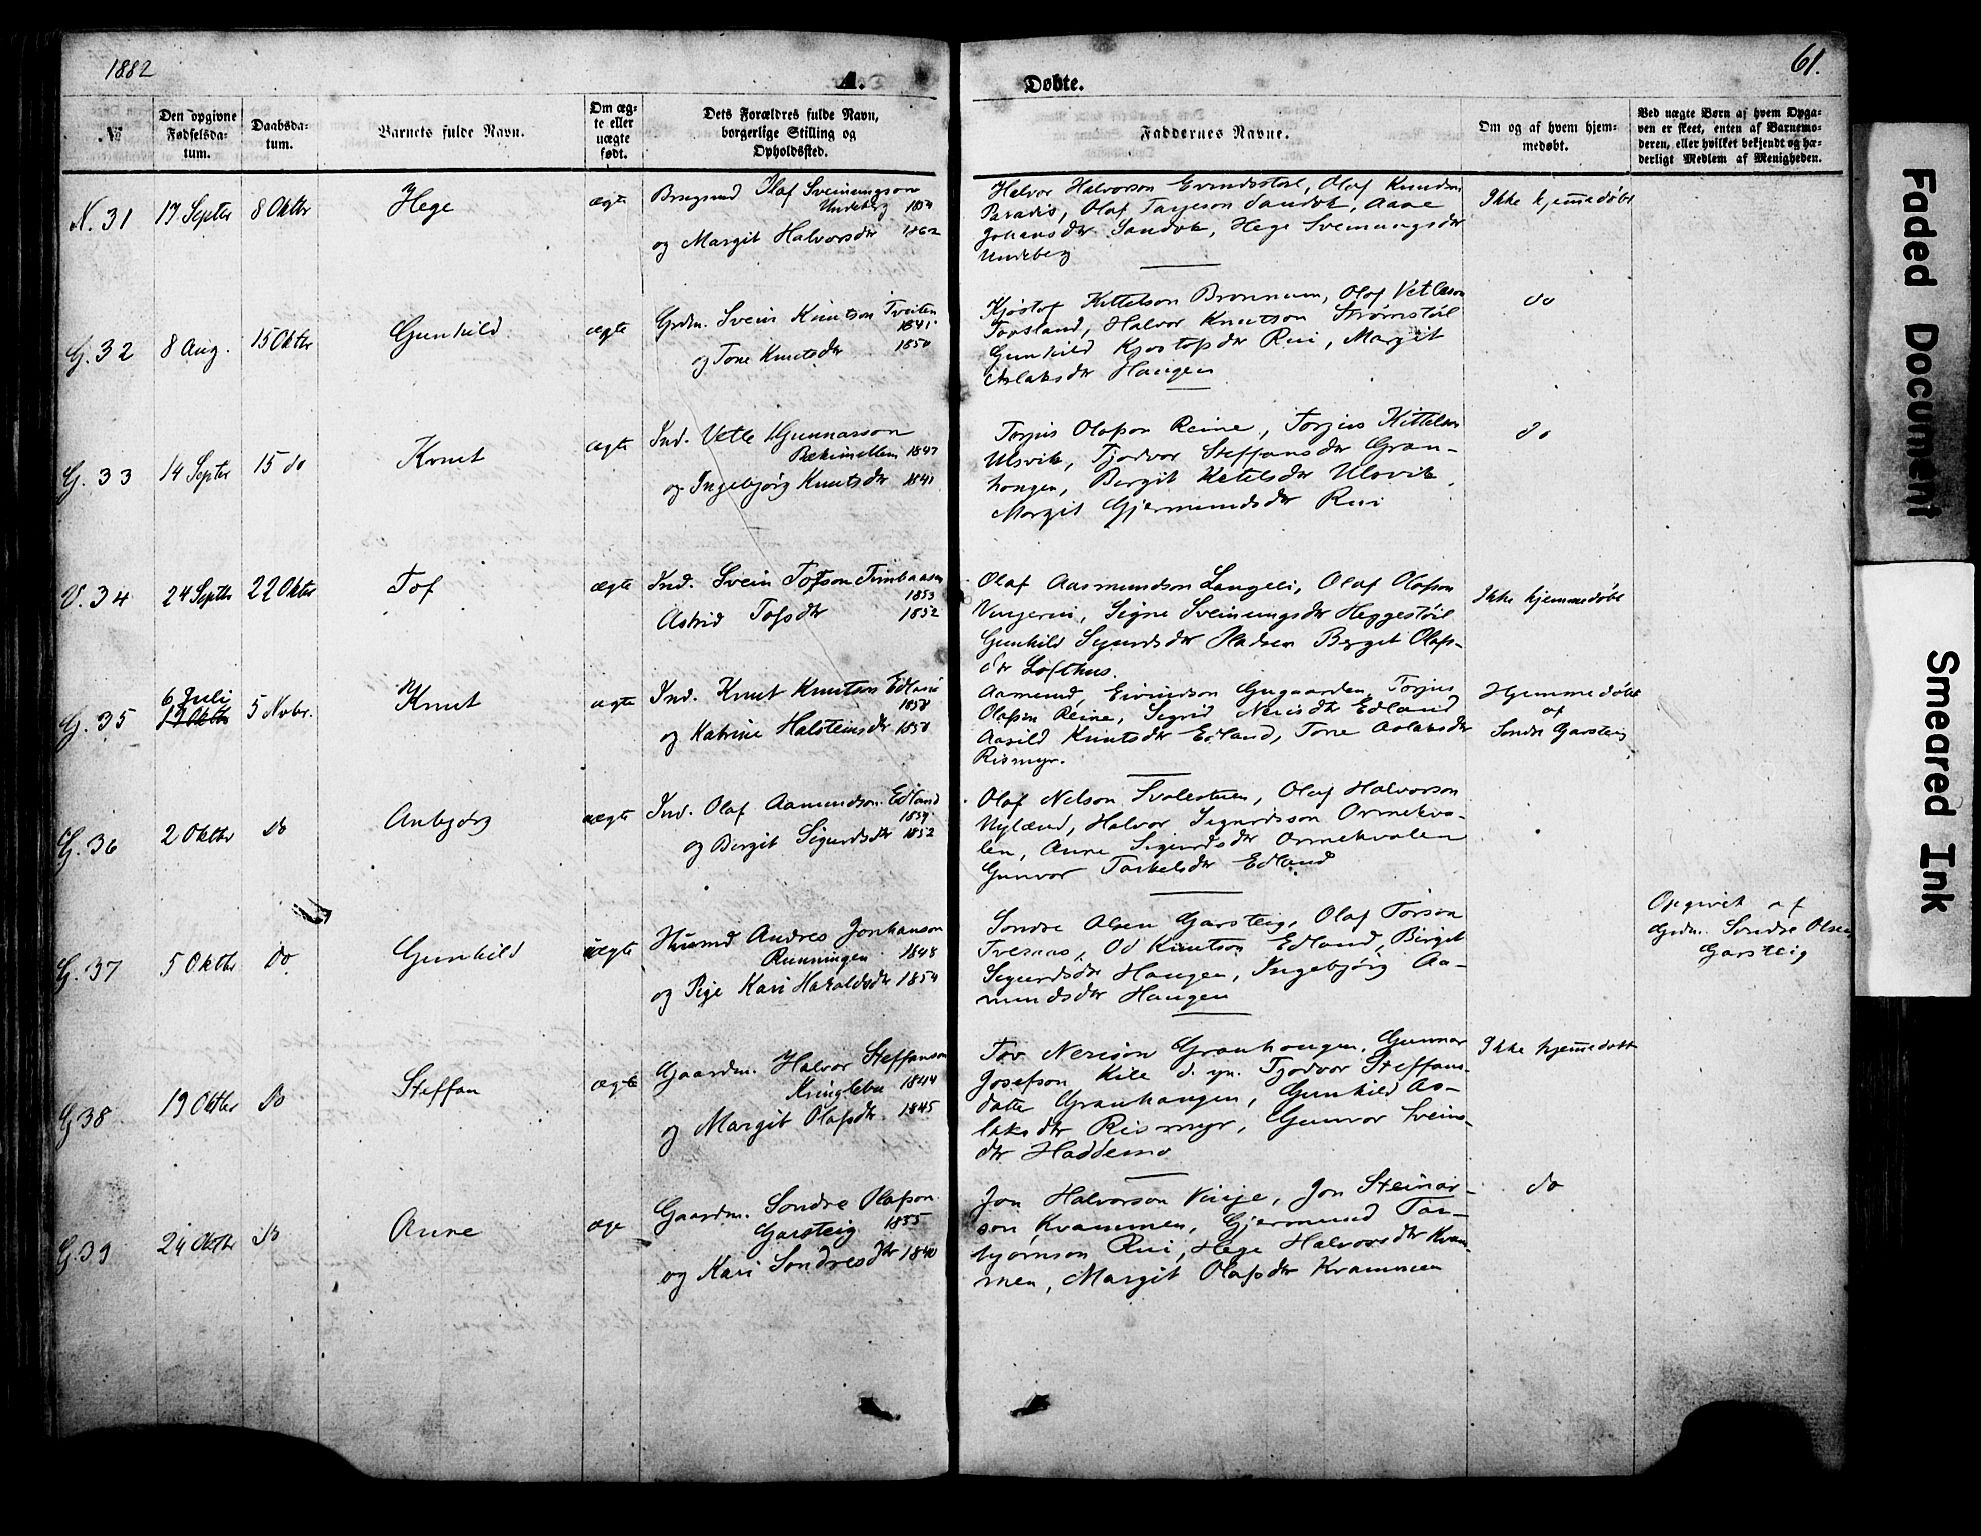 1882
A.
Døbte.
61.
№
Den opgivne Fødselsdatum.
Daabsdatum.
Barnets fulde Navn.
Om ægte eller uægte født.
Dets Forældres fulde Navn, borgerlige Stilling og Opholdssted.
Faddernes Navne.
Om og af hvem hjemmedøbt.
Ved uægte Børn af hvem Opgaven er skeet, enten af Barnemoderen, eller hvilket bekjendt og hæderligt Medlem af Menigheden.
N. 31
19 Septbr
8 Oktbr
Hege
ægte
Olaf Sveinungson
Undeberg 1854
og Margit Halvorsdtr 1862
Halvor Halvorson Olaf Knudson
Paradis, Olaf Tarjeson Sandok, Aase
Johansdtr Sandok, Hege Sveinungsdtr
Undeberg
Ikke hjemmedøbt
G. 32
8 Aug.
15 Oktbr
Gunhild
ægte
Grdm. Svein Knutson Tveiten
1841
og Tone Knutsdtr 1850
Kjøstof Kittelson Olof Vetleson
Torsland, Halvor Knutson Strømstøil
Gunhild Kjøstofsdtr Rui, Margit
Aslaksdtr Haugen
do
G. 33
14 Septbr
15 do
Knut
ægte
Ind. Vetle Gunnarson
1847
og Ingebjørg Knutsdtr 1841
Torjus Olafson Reine, Torjus Kittelson
Ulsvik, Tjodvor Steffansdtr Gran-
hougen, Bergit Ketelsdtr Ulsvik,
Margit Gjermundsdtr Rui
do
V. 34
24 Septbr
22 Oktbr
Tof
ægte
Ind. Svein Tofson
1853
Astrid Tofsdtr 1852
Olaf Aasmundson Langeli, Olaf Olafson
Signe Sveinungsdtr Heggestøil
Gunhild Bergit Olafs-
dtr Lofthus.
Ikke hjemmedøbt
G. 35
6 Juli
5 Novbr.
Knut
ægte
Ind. Knut Knutson Edland
1858
og Katrine Halsteinsdtr 1858
Aamund Eivindson Torjus
Olafson Reine, Sigrid Nerisdtr Edland
Aasild Knutsdtr Edland, Tone Aslaksdtr
Rismyr.
Hjemmedøbt
af
Sondre Garsteig
G. 36
2 Oktbr
do
Anbjørg
ægte
Ind. Olaf Aamundson Edland
1859
og Bergit Sigurdsdtr 1852
Olaf Nelson Olaf Halvorson
Nyland, Halvor Sigurdsson Ormekva-
len, Anne Sigurdsdtr Ormekvalen
Gunvor Torkelsdtr Edland
G. 37
5 Oktbr
do
Gunhild
uægte
Husmd Andres Jonhanson
Runningen 1848
og Pige Kari Haraldsdtr 1854
Sondre Olsen Garsteig, Olaf Torson
Od Knutson Edland, Birget
Sigurdsdtr Haugen, Ingebjørg Aa-
mundsdtr Haugen
Opgivet af
Grdm. Sondre Olsen
Garsteig
G 38
19 Oktbr
do
Steffan
ægte
Gaardm. Halvor Steffanson
Kringlebu 1844
og Margit Olafsdtr 1845
Tov Nerison Granhougen, Gunnar
Josefson Kile d. yn. Tjodvor Steffans-
datter Granhaugen, Gunhild As-
laksdtr Rismyr, Gunvor Sveins-
dtr Haddemo
Ikke hjemmedøbt
G. 39
24 Oktbr
do
Anne
æge
Gaardm. Sondre Olafson
Garsteig 1835
og Kari Sondresdtr 1840
Jon Halvorson Vinje, Jon Steinar-
son Kvammen, Gjermund Tor-
bjørnson Rui, Hege Halvorsdtr Kvam-
men, Margit Olafsdtr Kvammen
do
Faded Document
Smeared Ink